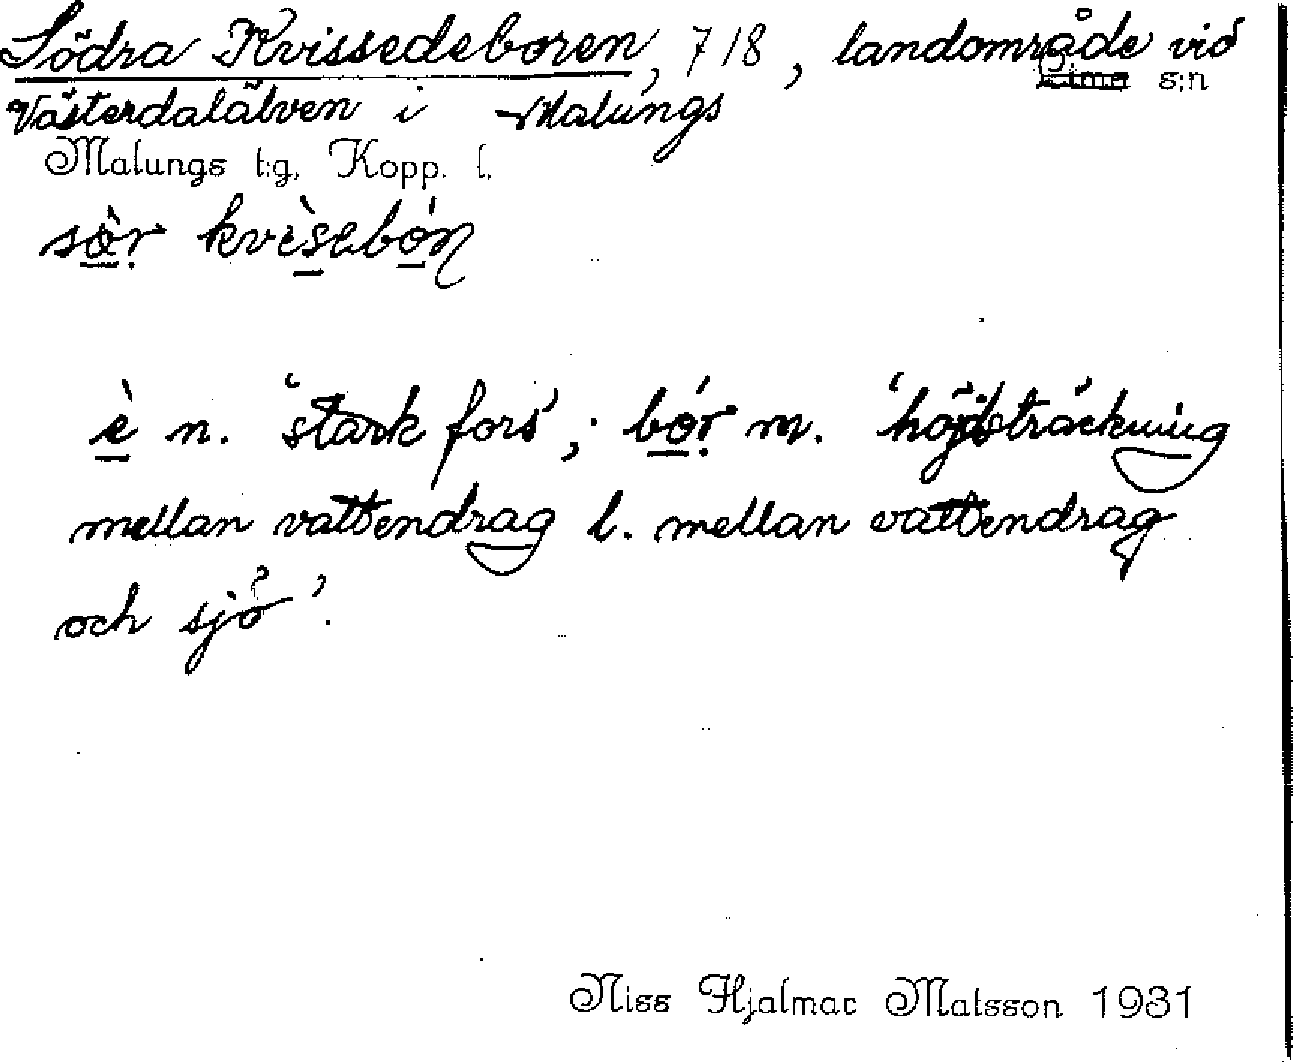 Södra Kvissedeboren, 718, landområde vid
Lima s:n
Västerdalälven i Malungs
Malungs t:g, Kopp. l.
sö̀r kvìsebón
è n. 'stark fors'; bór m. 'höjdsträckning
mellan vattendrag l. mellan vattendrag
och sjö'.
Niss Hjalmar Matsson 1931